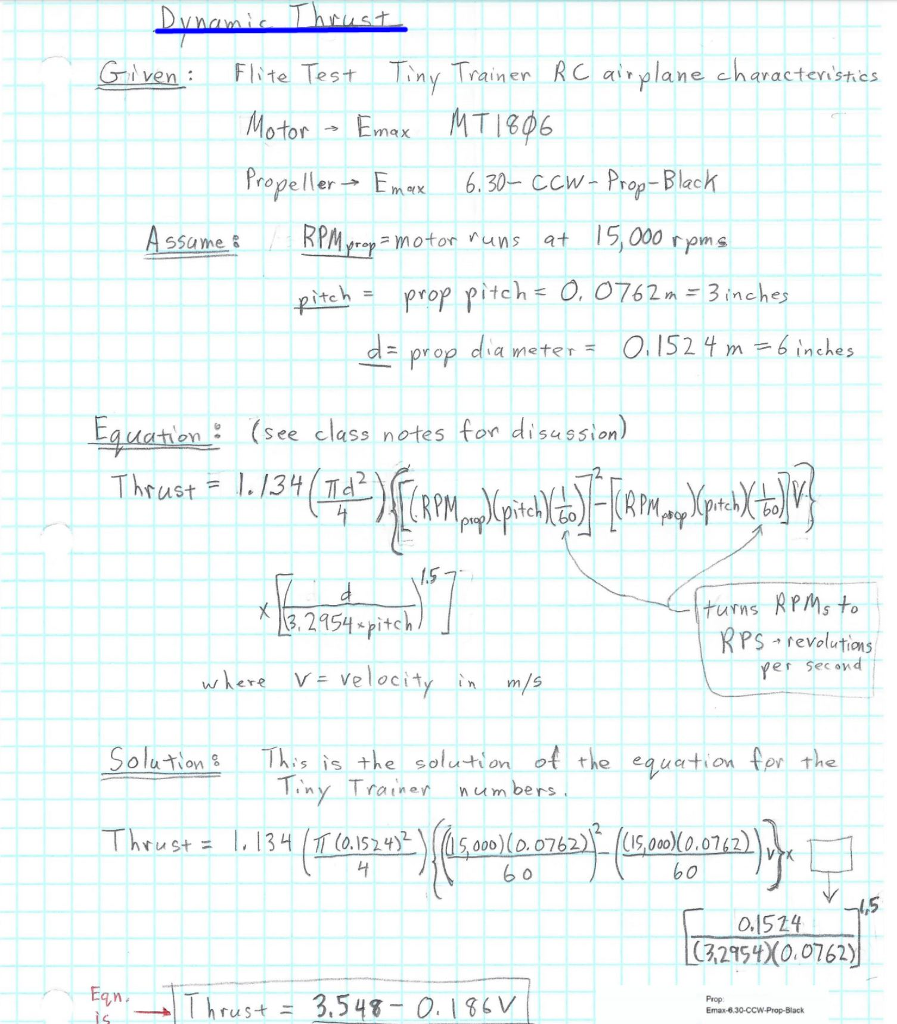 Dynamic Thrust
Given: Flite Test Tiny Trainer RC airplane characteristics
Motor → Emax MT1806
Propeller → Emax 6.30- CCW-Prop-Black
Assume: RPMprop = motor runs at 15,000 rpms
pitch = prop pitch = 0.0762m = 3 inches
d = prop diameter = 0.1524 m = 6 inches
Equation: (see class notes for disussion)
Thrust = 1.134 (πd²/4) {[(RPMprop)(pitch)(1/60)]² - [(RPMprop)(pitch)(1/60)]V}
x [(d/(3.2954×pitch))^1.5]
turns RPMs to
RPS → revolutions
per second
where V = velocity in m/s
Solution: This is the solution of the equation for the
Tiny Trainer numbers.
Thrust = 1.134 (π(0.1524)²/4) {((15,000)(0.0762)/60)² - ((15,000)(0.0762)/60)V} x □
[0.1524/((3.2954)(0.0762))]^1.5
Eqn.
is → Thrust = 3.548 - 0.186V
Prop:
Emax-6.30-CCW-Prop-Black